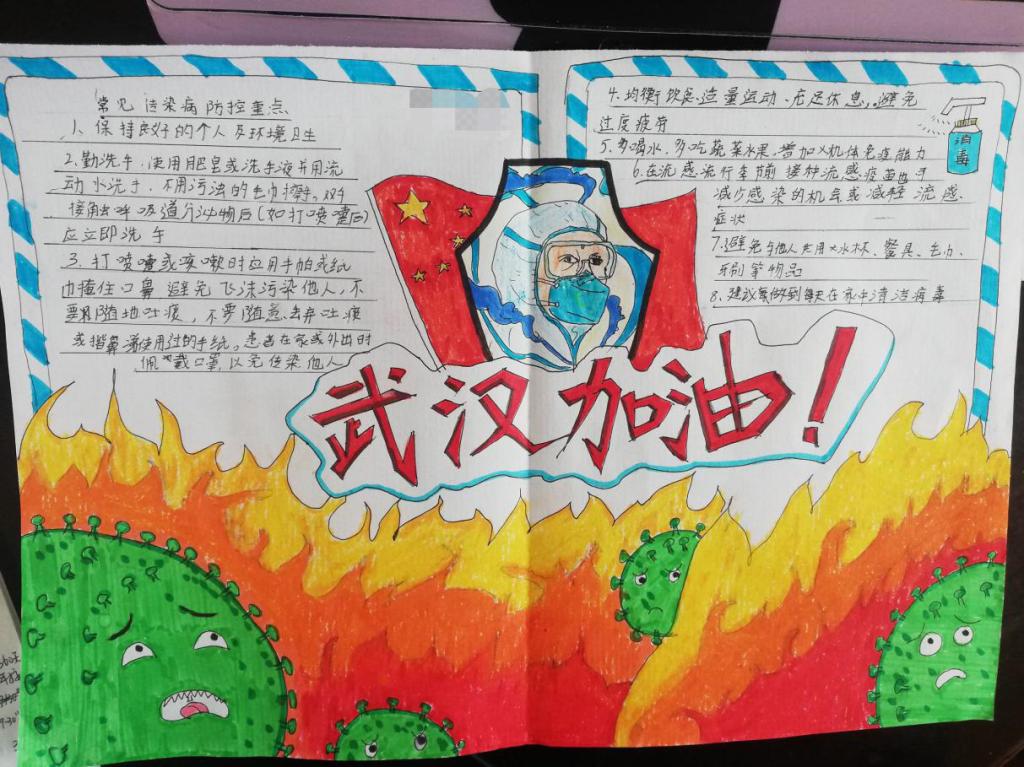 常见传染病防控重点
1、保持良好的个人及环境卫生
2.勤洗手,使用肥皂或洗手液并用流
动水洗手,不用污浊的毛巾擦手。双手
接触呼吸道分泌物后(如打喷嚏后)
应立即洗手
3、打喷嚏或咳嗽时应用手帕或纸
巾掩住口鼻,避免飞沫污染他人,不
要随地吐痰,不要随意丢弃吐痰
或揩鼻涕使用过的手纸。患者在家或外出时
佩戴口罩,以免传染他人
4.均衡饮食、适量运动、充足休息,避免
过度疲劳
5、多喝水,多吃蔬菜水果,增加机体免疫能力
6.在流感流行季前接种流感疫苗也可
减少感染的机会或减轻流感
症状
7.避免与他人共用水杯、餐具、毛巾、
牙刷等物品
8、建议等做到每天在家中清洁病毒
消毒
武汉加油!